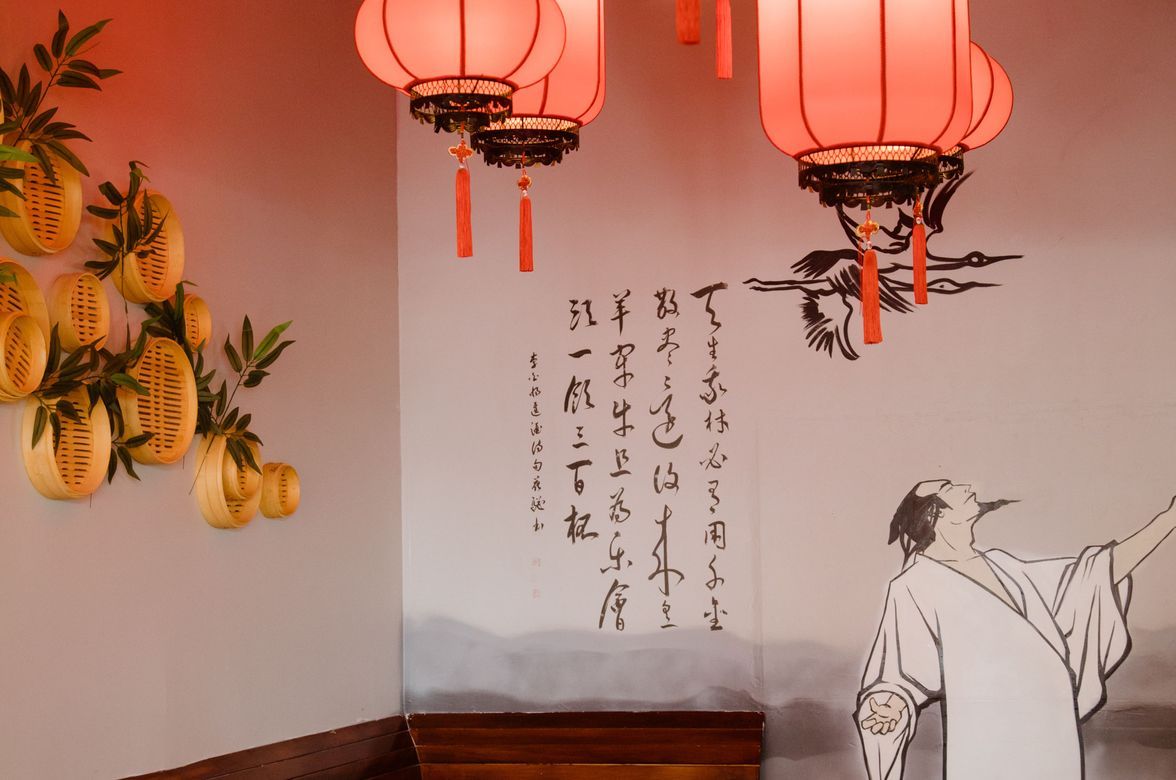 天生我材必有用千金
散尽还復来烹
羊宰牛且为乐會
须一饮三百杯
李白将进酒诗句